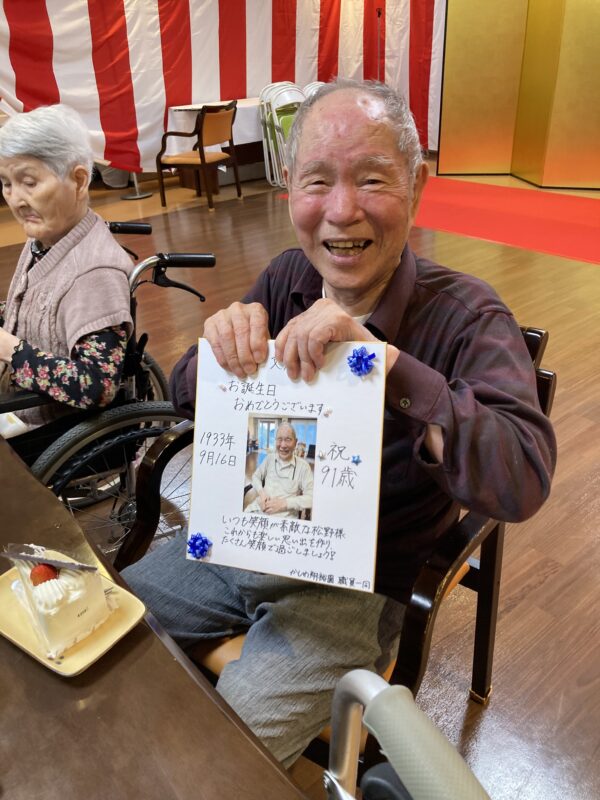 お誕生日
おめでとうございます
1933年
9月16日
祝
91歳
いつも笑顔が素敵な松野様
これからも楽しい思い出を作り
たくさん笑顔で過ごしましょう!!
職員一同